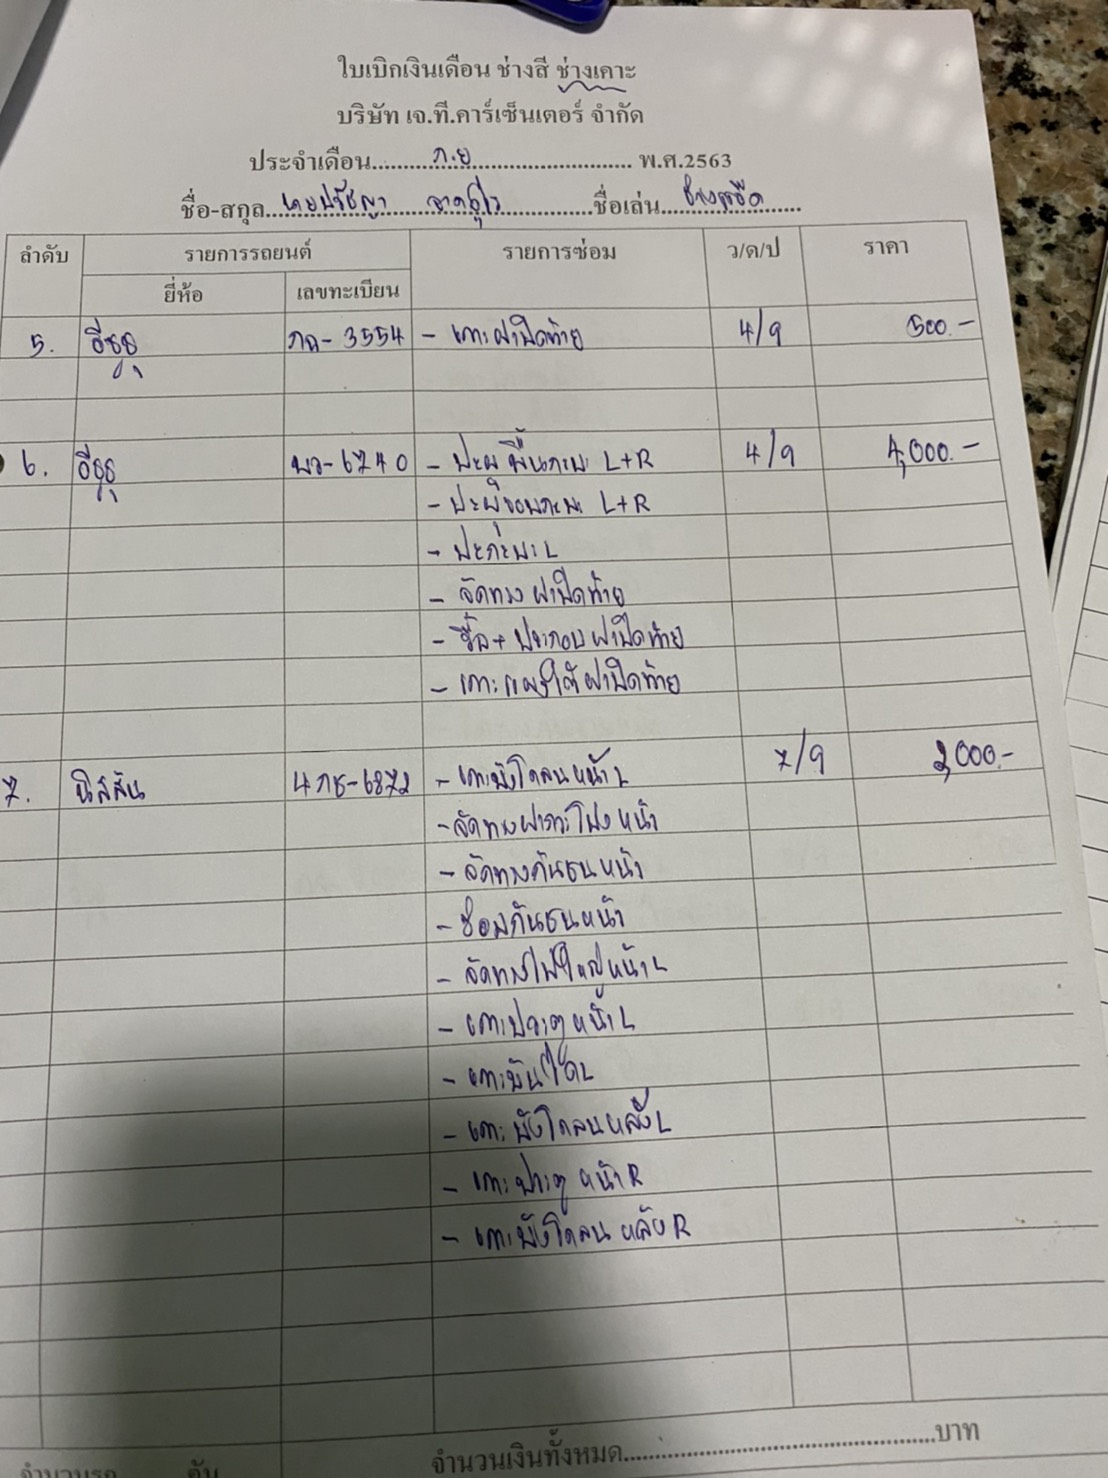 ใบเบิกเงินเดือน ช่างสี ช่างเคาะ
บริษัท เจ.ที.คาร์เซ็นเตอร์ จำกัด
ประจำเดือน ก.ย พ.ศ.2563
ชื่อ-สกุล นายปรัชญา ชื่อเล่น
ลำดับ รายการรถยนต์ รายการซ่อม ว/ด/ป ราคา
ยี่ห้อ เลขทะเบียน
5. อีซูซุ 3554 - เคาะฝาปิดท้าย 4/9 500.-
6. อีซูซุ 6740 - ปะผุพื้นกะบะ L+R 4/9 4,000.-
- ปะผุขอบกะบะ L+R
- ปะกะบะ L
- จัดทรงฝาปิดท้าย
- รื้อ + ประกอบฝาปิดท้าย
- เคาะแผงใต้ฝาปิดท้าย
7. นิสสัน 4กธ-6872 - เคาะบังโคลนหน้า L 7/9 2,000.-
- จัดทรงฝากระโปรงหน้า
- จัดทรงกันชนหน้า
- ซ่อมกันชนหน้า
- จัดทรงไฟใหญ่หน้า L
- เคาะประตูหน้า L
- เคาะบันได L
- เคาะบังโคลนหลัง L
- เคาะประตูหน้า R
- เคาะบังโคลนหลัง R
จำนวนรถ คัน จำนวนเงินทั้งหมด บาท